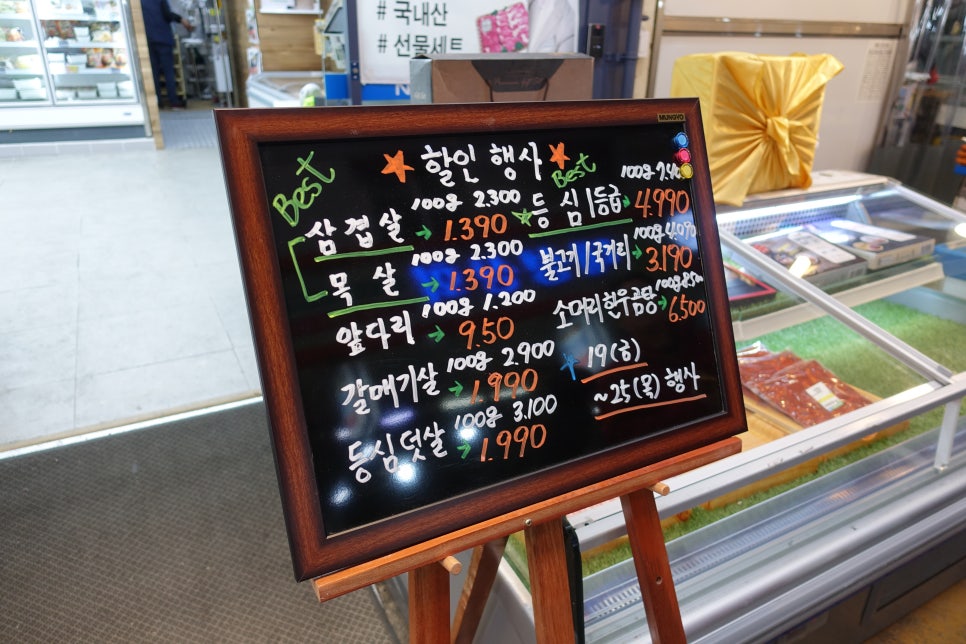 # 국내산
# 선물세트
MUNGYO
할인 행사
Best
100g 2.300
삼겹살 → 1.390
100g 2.300
목살 → 1.390
100g 1.200
앞다리 → 9.50
100g 2.900
갈매기살 → 1.990
100g 3.100
등심덧살 → 1.990
Best
100g
등심 1등급 → 4.990
100g 4.090
불고기/국거리 → 3.190
100g
소머리한우곰탕 → 6.500
19(금)
~25(목) 행사